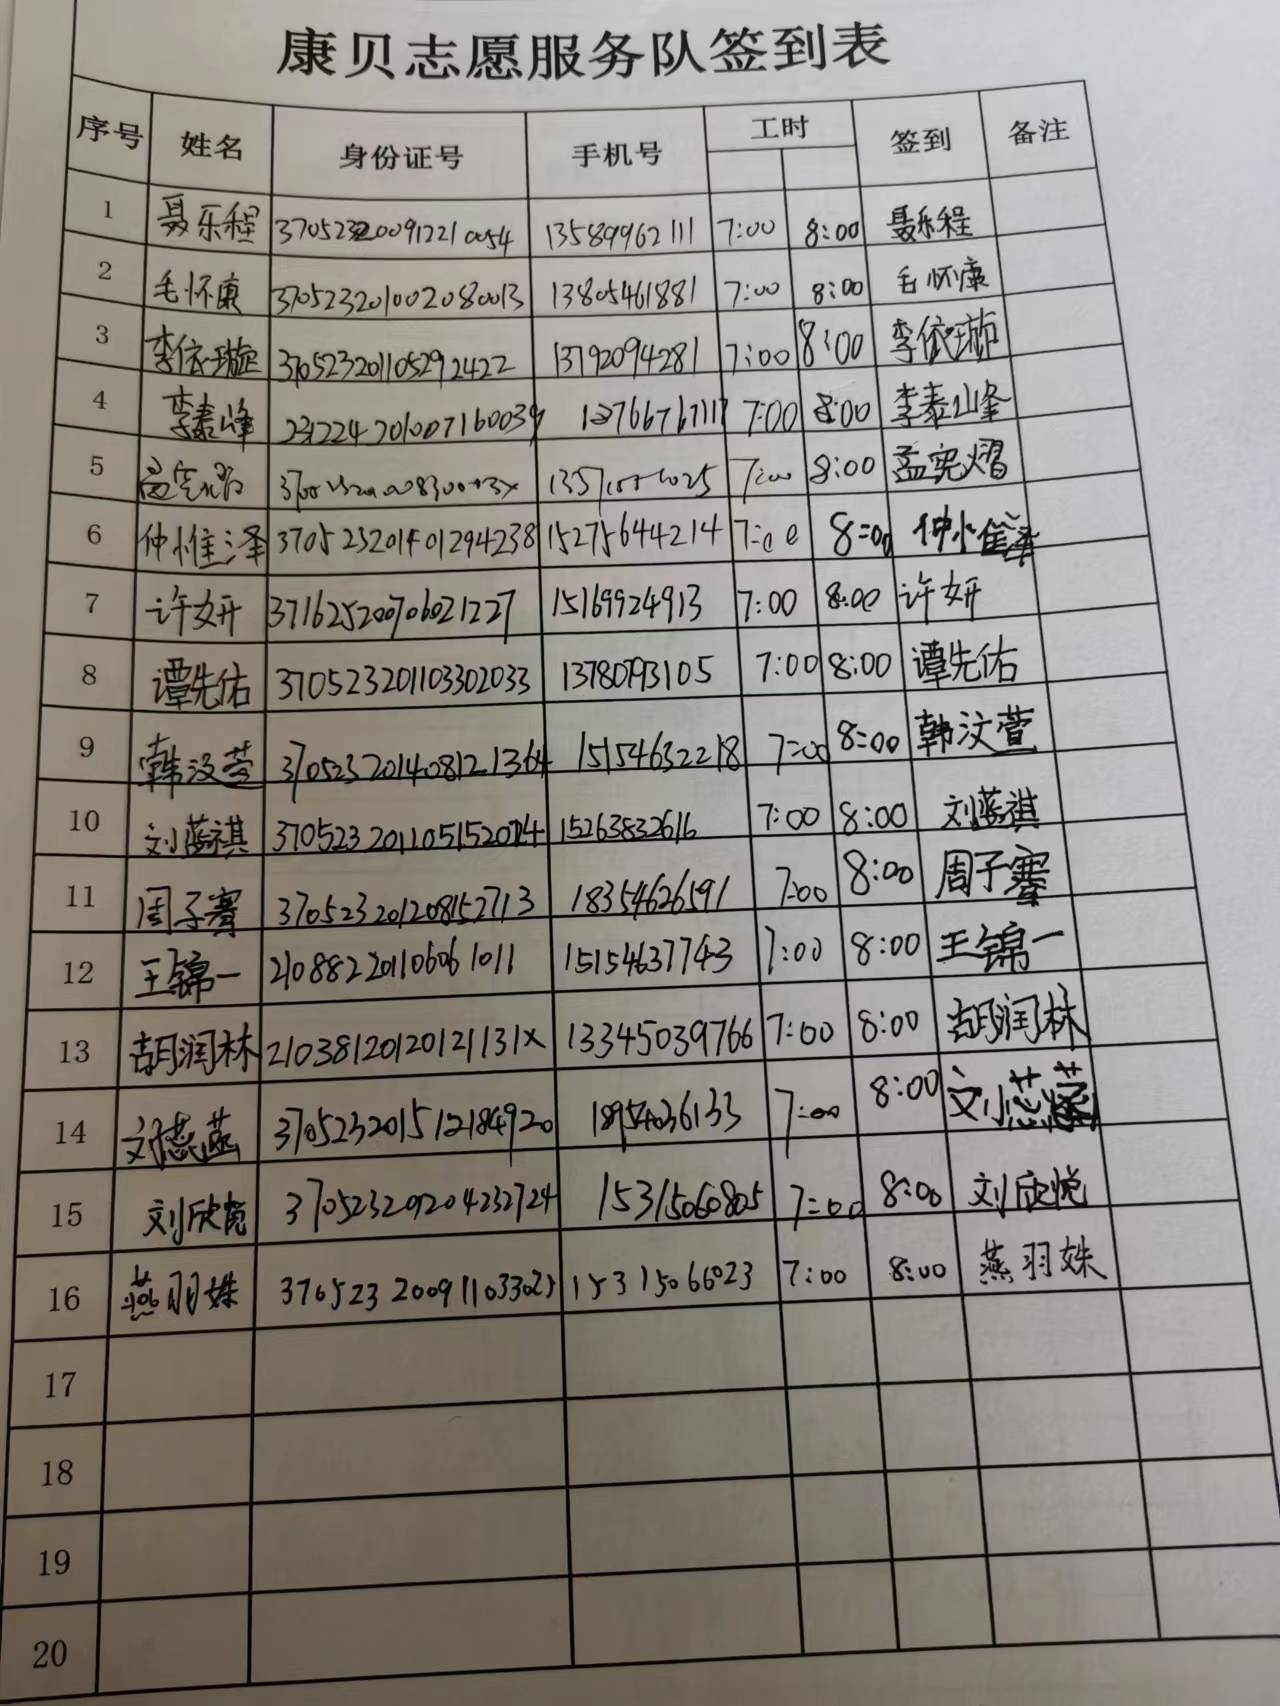 康贝志愿服务队签到表
序号 姓名 身份证号 手机号 工时 签到 备注
1 聂乐程 13589962111 7:00 8:00 聂乐程
2 毛怀康 370523201002080013 13805461881 7:00 8:00 毛怀康
3 李依璇 370523201105292422 13792094281 7:00 8:00 李依璇
4 李泰峰 7:00 8:00 李泰峰
5 7:00 8:00 孟宪熠
6 仲惟泽 370523201401294238 15275644214 7:00 8:00 仲惟泽
7 许妍 371625200706021227 15169924913 7:00 8:00 许妍
8 谭先佑 370523201103302033 13780793105 7:00 8:00 谭先佑
9 韩汶萱 370523201408121364 15154632218 7:00 8:00 韩汶萱
10 刘蓝祺 15263832616 7:00 8:00 刘蓝祺
11 周子骞 370523201208152713 18354626591 7:00 8:00 周子骞
12 王锦一 210882201106061011 15154637743 7:00 8:00 王锦一
13 胡润林 21038120120121131X 13345039766 7:00 8:00 胡润林
14 370523201512184920 18954036133 7:00 8:00
15 刘欣悦 370523201204232724 15315060805 7:00 8:00 刘欣悦
16 燕羽姝 15315066023 7:00 8:00 燕羽姝
17
18
19
20